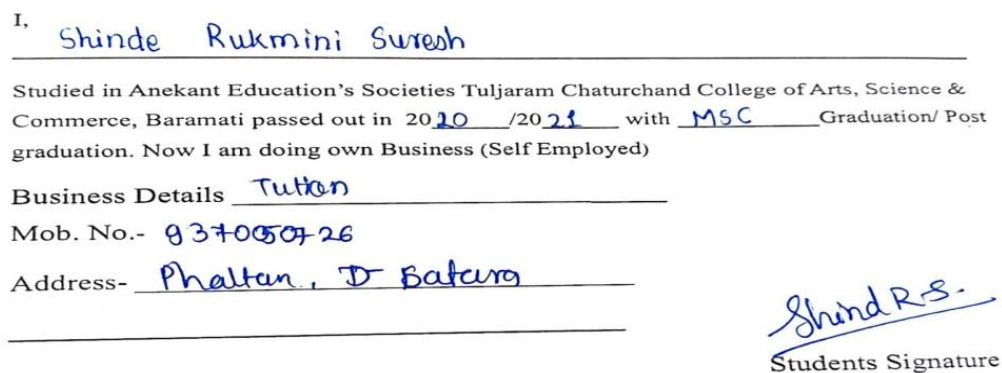 I,
Shinde Rukmini Suresh
Studied in Anekant Education's Societies Tuljaram Chaturchand College of Arts, Science &
Commerce, Baramati passed out in 2020 /2021 with MSC Graduation/ Post
graduation. Now I am doing own Business (Self Employed)
Business Details Tution
Mob. No.-
Address- Phaltan, D Satara
Shind R.S.
Students Signature